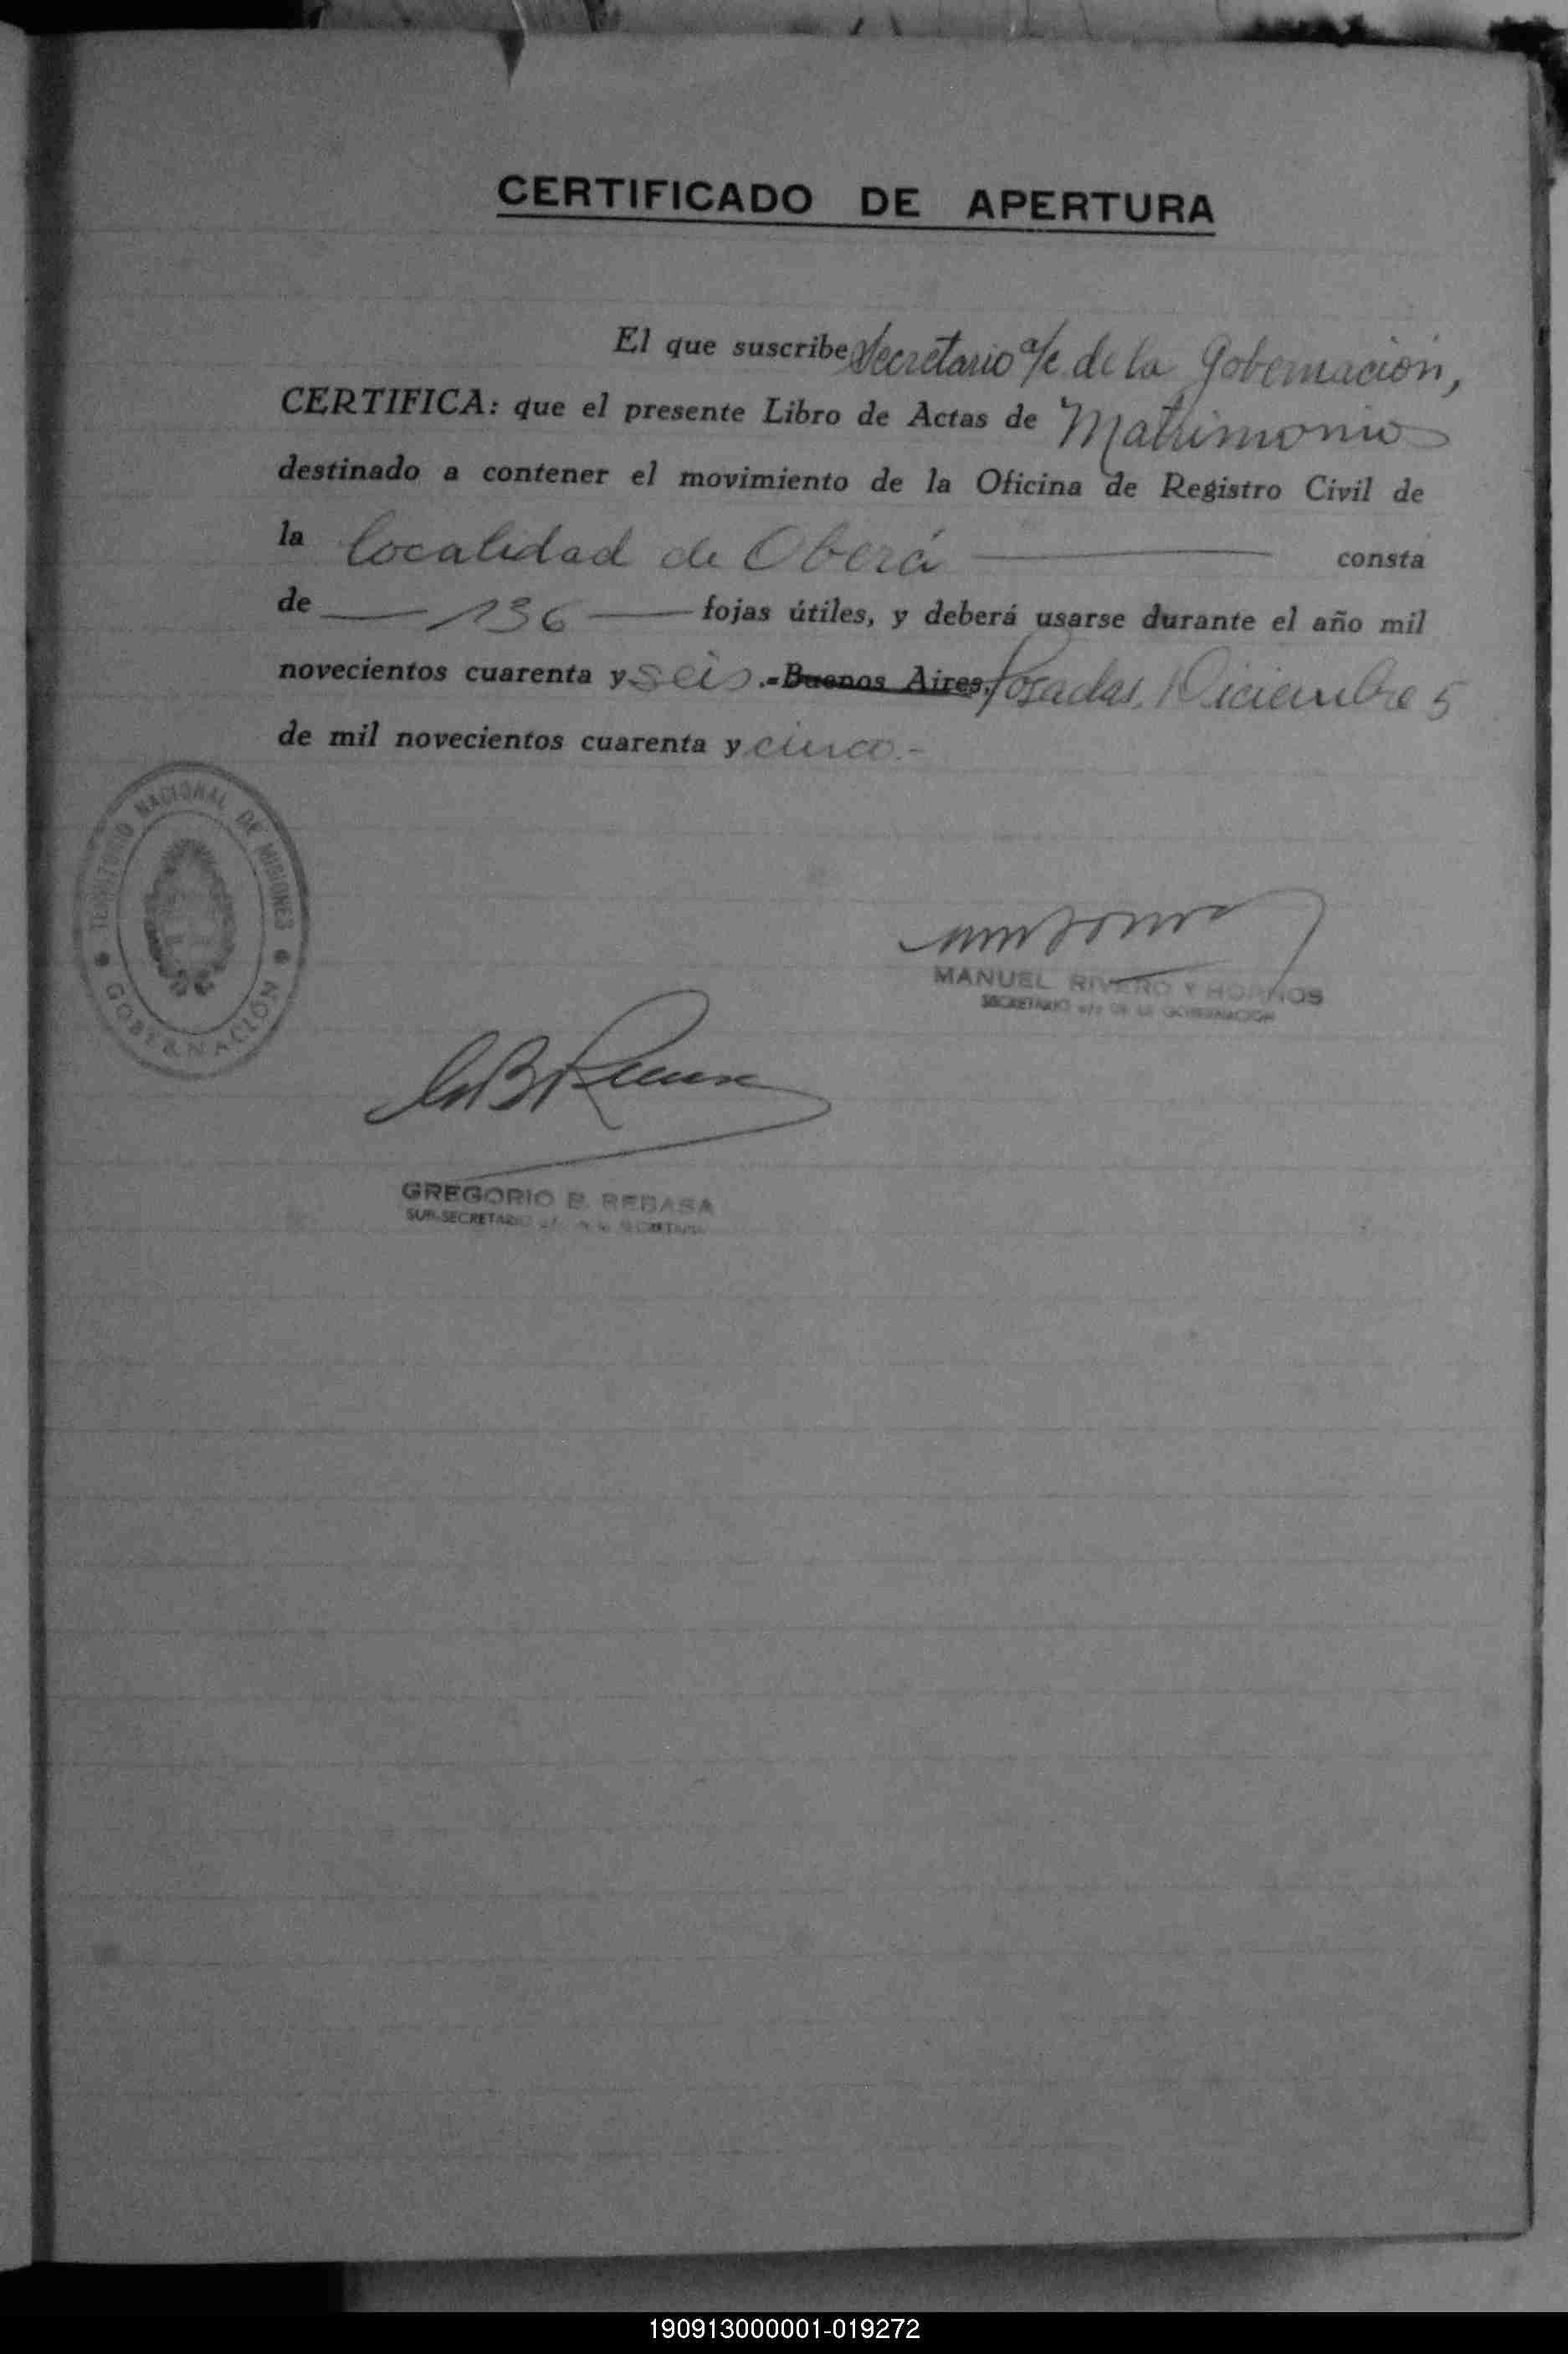 CERTIFICADO DE APERTURA
El que suscribe Secretario a/c de la Gobernación,
CERTIFICA: que el presente Libro de Actas de Matrimonio
destinado a contener el movimiento de la Oficina de Registro Civil de
la localidad de Oberá consta
de 136 fojas útiles, y deberá usarse durante el año mil
novecientos cuarenta y seis.-Buenos Aires, Posadas, Diciembre 5
de mil novecientos cuarenta y cinco.-
TERRITORIO NACIONAL DE MISIONES
GOBERNACIÓN
MANUEL RIVERO Y HORNOS
SECRETARIO a/c DE LA GOBERNACION
GREGORIO B. REBASA
SUB-SECRETARIO
190913000001-019272